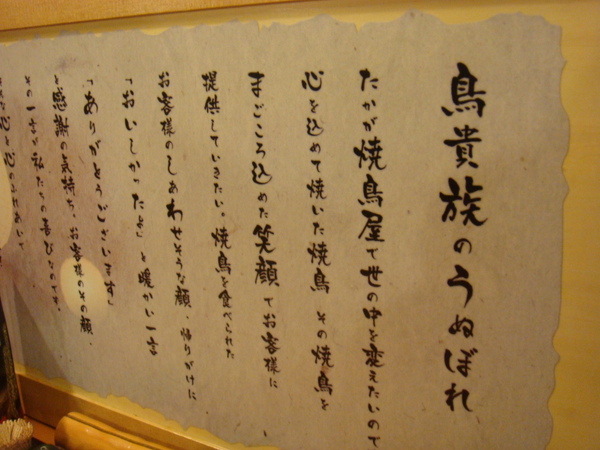 鳥貴族のうぬぼれ
たかが焼鳥屋で世の中を変えたいのです
心を込めて焼いた焼鳥 その焼鳥を
まごころ込めた笑顔でお客様に
提供していきたい。焼鳥を食べられた
お客様のしあわせそうな顔、帰りがけに
「おいしかったよ」と暖かい一言
「ありがとうございます」
と感謝の気持ち、お客様のその顔、
その一言が私たちの喜びなのです。
心と心のふれあいで